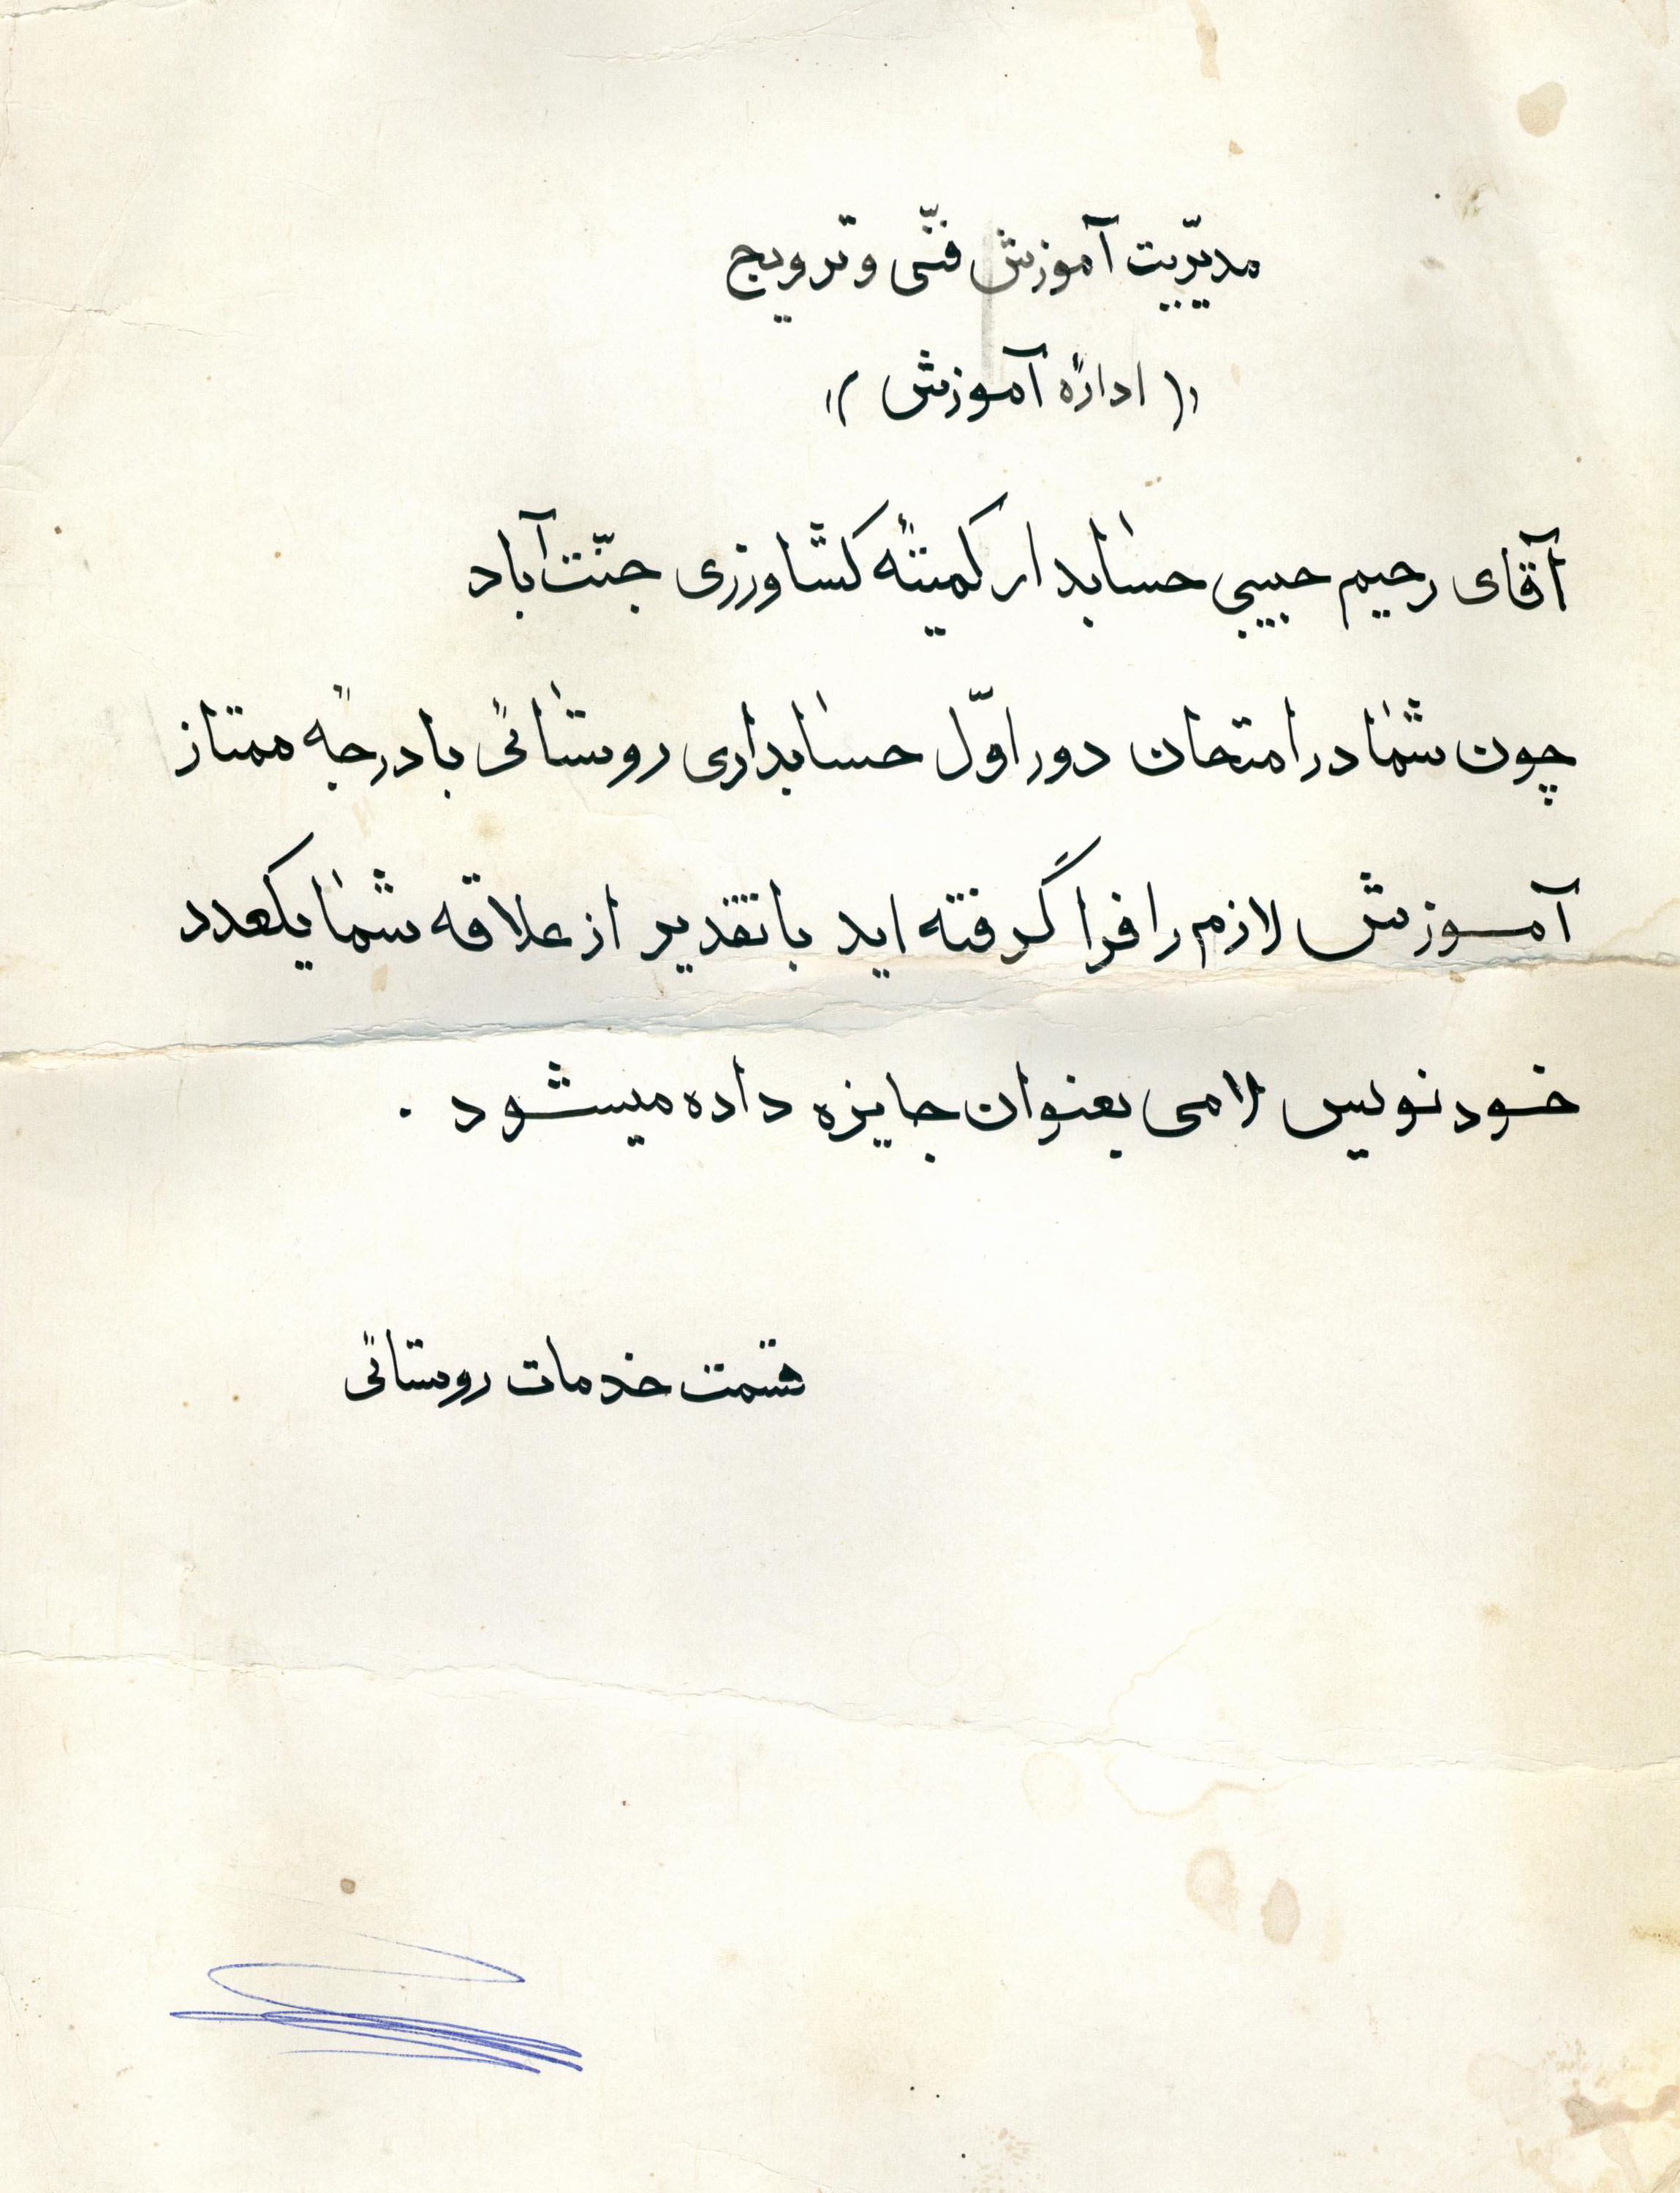 مدیّریت آموزش فنّی و ترویج
(( ادارهٔ آموزش ))
آقای رحیم حبیبی حسابدار کمیتهٔ کشاورزی جنّت‌آباد
چون شما در امتحان دور اوّل حسابداری روستائی با درجهٔ ممتاز
آموزش لازم را فرا گرفته اید با تقدیر از علاقه شما یکعدد
خودنویس لامی بعنوان جایزه داده میشود .
قسمت خدمات روستائی